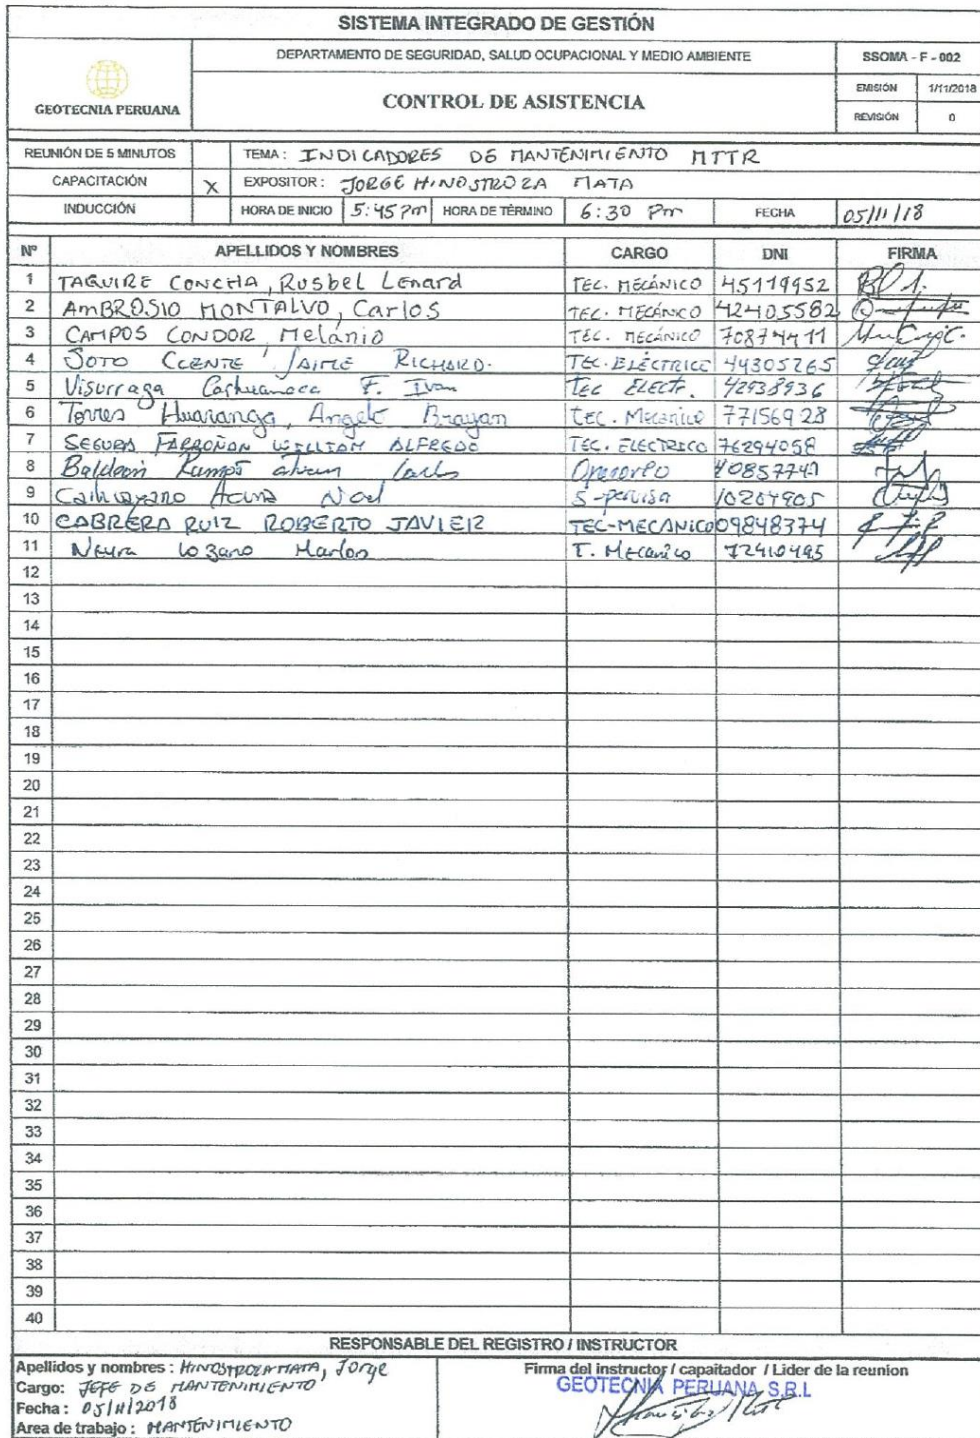 SISTEMA INTEGRADO DE GESTIÓN
GEOTECNIA PERUANA
DEPARTAMENTO DE SEGURIDAD, SALUD OCUPACIONAL Y MEDIO AMBIENTE
SSOMA - F - 002
CONTROL DE ASISTENCIA
EMISIÓN 1/11/2018
REVISIÓN 0
REUNIÓN DE 5 MINUTOS TEMA: INDICADORES DE MANTENIMIENTO MTTR
CAPACITACIÓN X EXPOSITOR: JORGE HINOSTROZA MATA
INDUCCIÓN HORA DE INICIO 5:45 Pm HORA DE TÉRMINO 6:30 Pm FECHA 05/11/18
Nº APELLIDOS Y NOMBRES CARGO DNI FIRMA
1 TAQUIRE CONCHA, Rusbel Lenard TEC. MECÁNICO 45119952
2 AmBROSIO MONTALVO, Carlos TEC. MECÁNICO 42405582
3 CAMPOS CONDOR Melanio TEC. MECÁNICO 70874411
4 SOTO CCENTE JAIME RICHARD. TEC. ELÉCTRICO 44305265
5 Visurraga F. Ivan Tec ELECT. 42938936
6 Torres Huaranga, Angelo Brayan tec. Mecanico 77156928
7 SEGURA FARROÑAN WILLIAM ALFREDO TEC. ELECTRICO 76294058
8 Ramos Carlos
9 Noel 10264905
10 CABRERA RUIZ ROBERTO JAVIER TEC-MECANICO 09848374
11 Neyra Lozano Marlon T. Mecanico 72410495
12
13
14
15
16
17
18
19
20
21
22
23
24
25
26
27
28
29
30
31
32
33
34
35
36
37
38
39
40
RESPONSABLE DEL REGISTRO / INSTRUCTOR
Apellidos y nombres : HINOSTROZA MATA, Jorge
Cargo: JEFE DE MANTENIMIENTO
Fecha : 05/11/2018
Area de trabajo : MANTENIMIENTO
Firma del instructor / capaitador / Lider de la reunion
GEOTECNIA PERUANA S.R.L